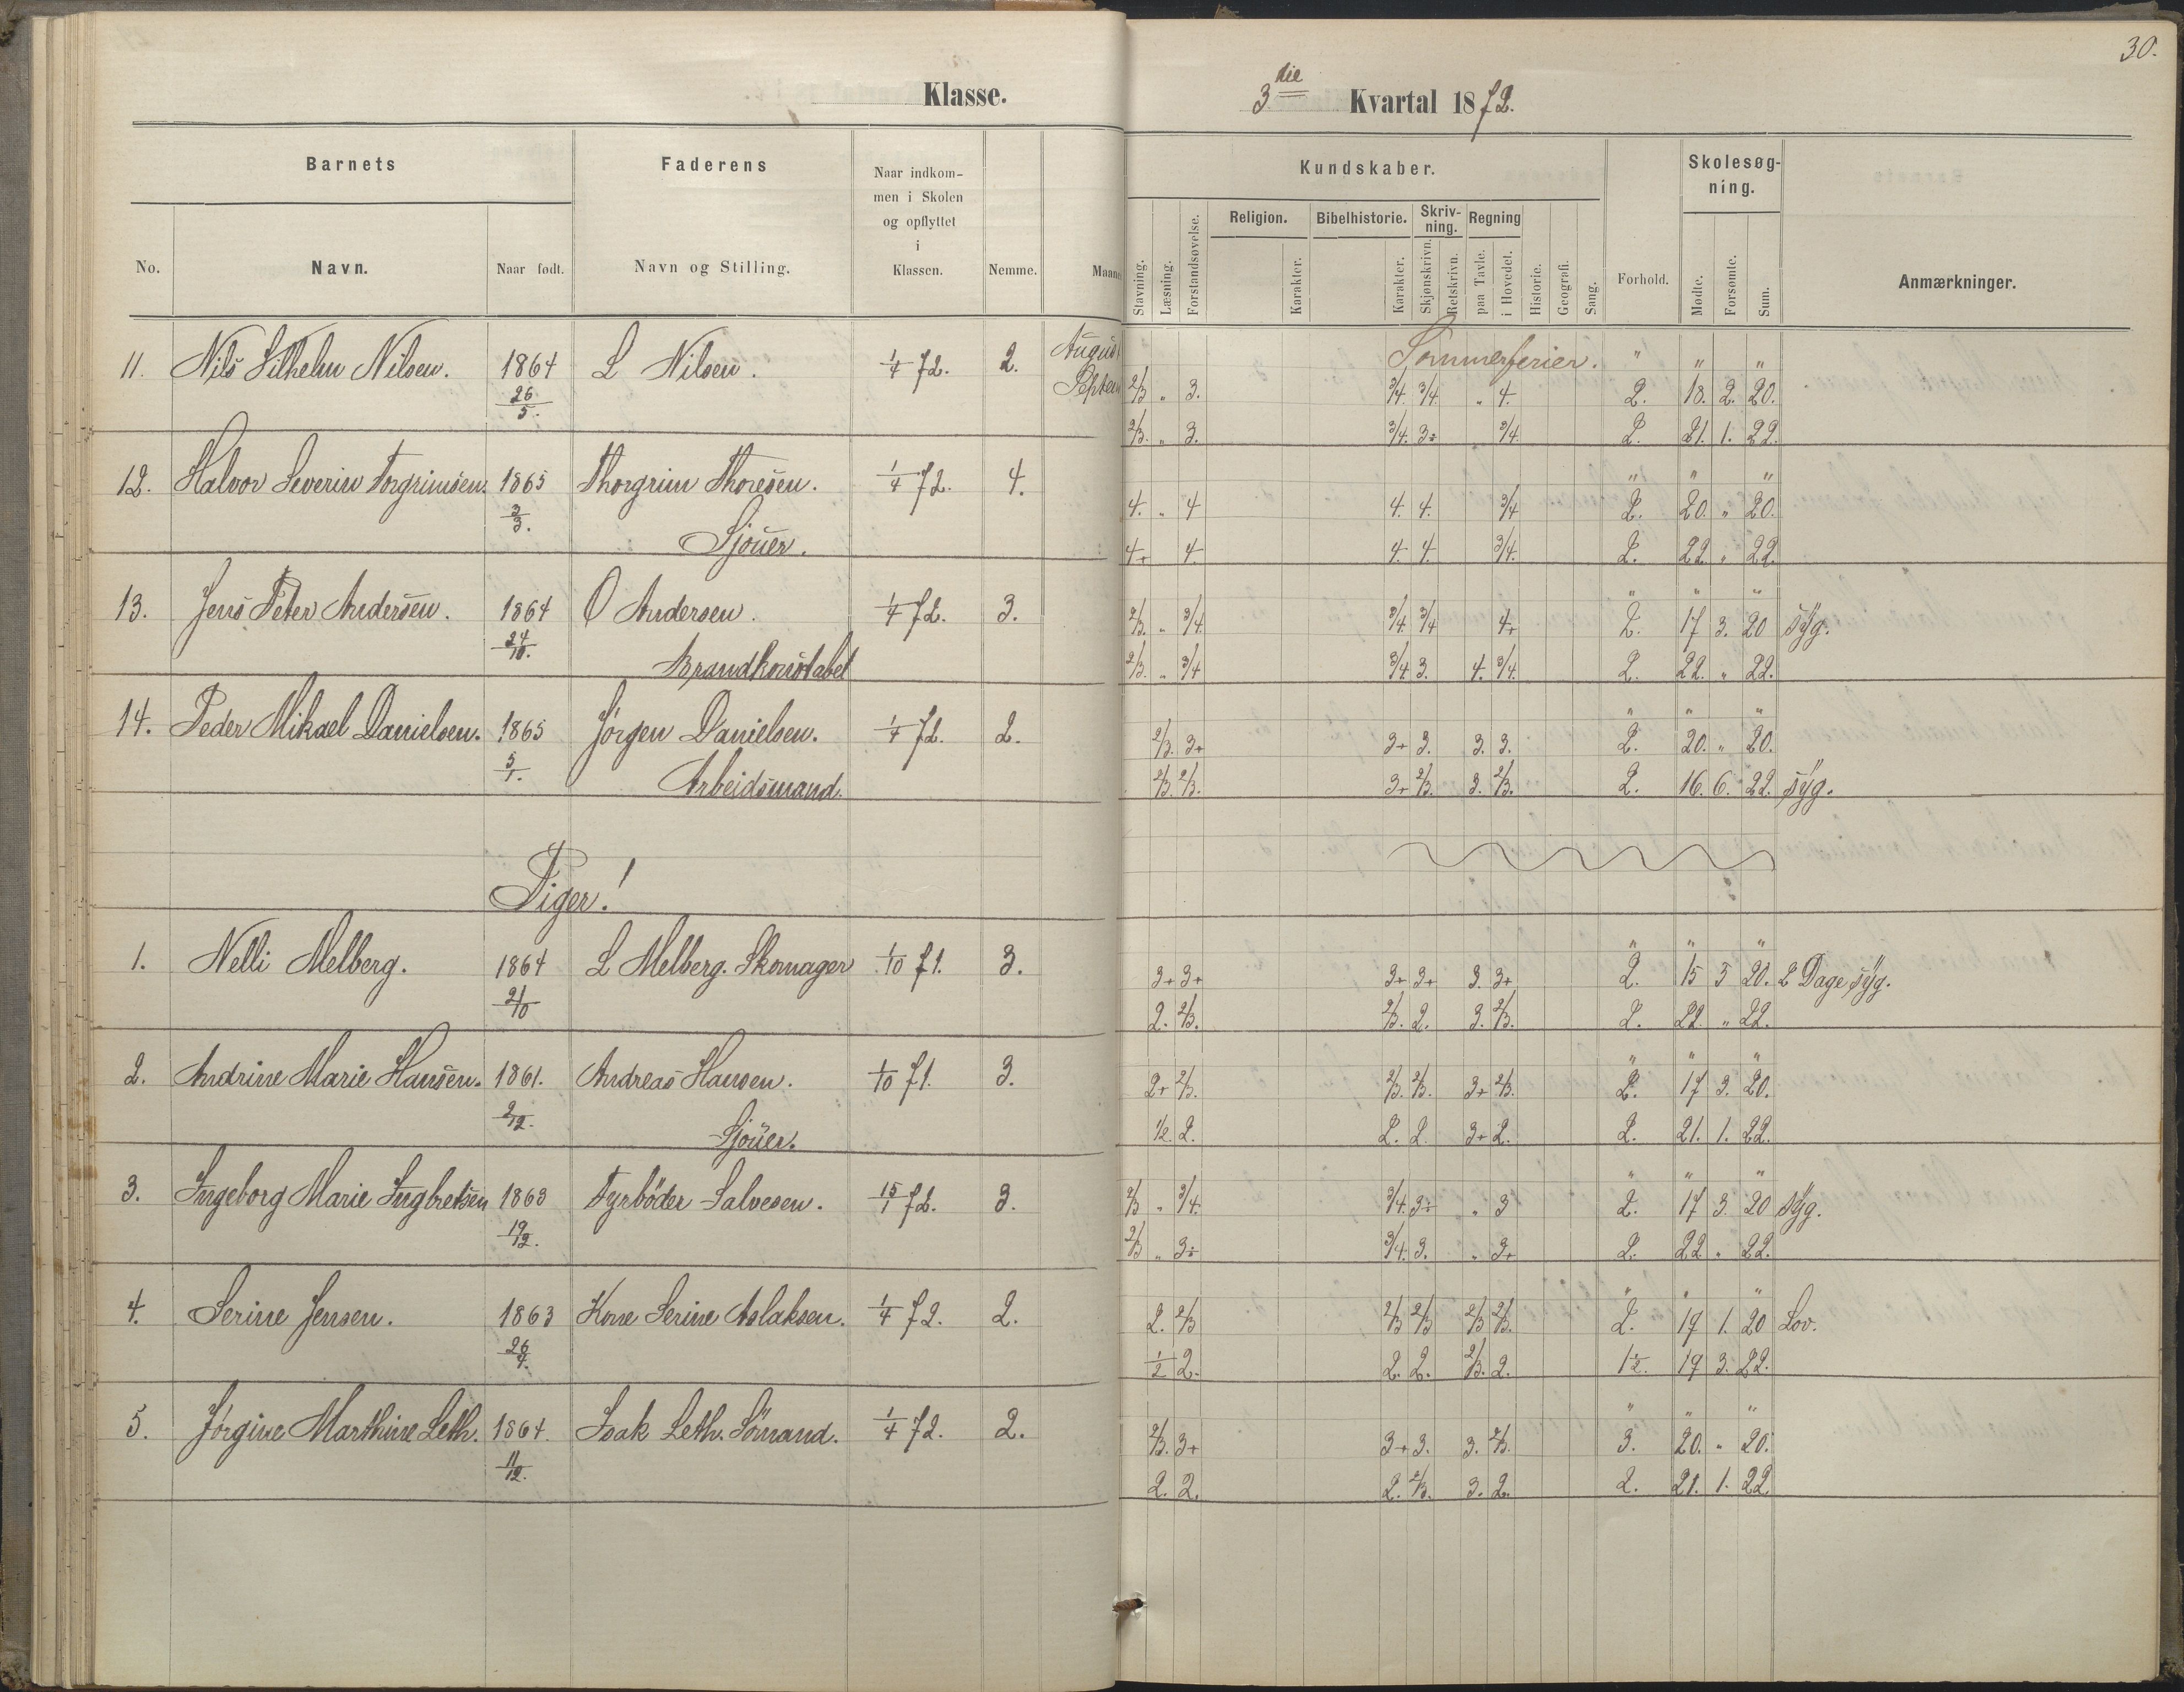 30.
Klasse.
3die Kvartal 1872.
Barnets Faderens Naar indkom-
men i Skolen
og opflyttet
i
Klassen. Nemme. Maaned
No. Navn. Naar født. Navn og Stilling.
Kundskaber. Forhold. Skolesøg-
ning. Anmærkninger.
Stavning. Læsning. Forstandsøvelse. Religion. Karakter. Bibelhistorie. Karakter. Skriv-
ning. Skjønskrivn. Retskrivn. Regning paa Tavle. i Hovedet. Historie. Geografi. Sang. Mødte. Forsømte. Sum.
11. Nils Vilhelm Nilsen. 1864 L Nilsen. 1/4 72. 2. August Sommerferier. " " "
26/5. Septem 2/3 " 3. 3/4. 3/4. " 4. 2. 18. 2. 20.
2/3. " 3. 3/4. 3÷ 3/4 2. 21. 1. 22.
12. Halvor Severin Torgrimsen. 1865 Thorgrim Thoresen. 1/4 72. 4. " " "
3/3. 4. " 4 4. 4. 3/4 2. 20. " 20.
Sjouer. 4+ 4. 4. 4. 3/4. 2. 22. " 22.
13. Jens Peter Andersen. 1864 O Andersen. 1/4 72. 3. " " "
24/10. 2/3. " 3/4. 3/4 3/4 4+ 2. 17 3. 20 syg.
Brandkonstabel 2/3. " 3/4 3/4 3. 4. 3/4. 2. 22. " 22.
14. Peder Mikael Danielsen. 1865 Jørgen Danielsen. 1/4 72. 2. " " "
5/1. 2/3. 3+ 3+ 3. 3. 3. 2. 20. " 20.
Arbeidsmand. 2/3. 2/3. 3+ 2/3. 3. 2/3. 2. 16. 6. 22. syg.
Piger!
1. Nelli Melberg. 1864 L Melberg. Skomager 1/10 71. 3. " " "
21/10 3+ 3+ 3+ 3+ 3. 3+ 2. 15 5 20. 2 Dage syg.
2. 2/3. 2/3. 2. 3. 2/3. 2. 22. " 22.
2. Andrine Marie Hansen. 1861. Andreas Hansen. 1/10 71. 3. " " "
2/12. 2+ 2/3. 2/3. 2/3. 3+ 2/3. 2. 17 3. 20.
Sjouer. 1/2. 2. 2. 2. 3+ 2. 2. 21. 1. 22.
3. Ingeborg Marie Ingbretsen 1863 Fyrbøder Salvesen. 15/1 72. 3. " " "
19/12. 2/3 " 3/4. 3/4. 3÷ " 3 2. 17 3. 20 syg.
2/3 " 3÷ 3/4. 3. " 3+ 2. 22 " 22.
4. Serine Jensen. 1863 Kone Serine Aslaksen. 1/4 72. 2. " " "
26/4. 2. 2/3 2/3 2/3 2/3 2/3. 2. 19 1. 20 Lov.
1/2 2. 2. 2. 2/3. 2. 1/2. 19 3. 22.
5. Jørgine Marthine Leth. 1864. Isak Leth. Sømand. 1/4 72. 2. " " "
11/12. 2/3. 3+ 3+ 3. 3. 2/3. 3. 20. " 20.
2. 2. 2. 2/3. 3. 2. 2. 21. 1. 22.